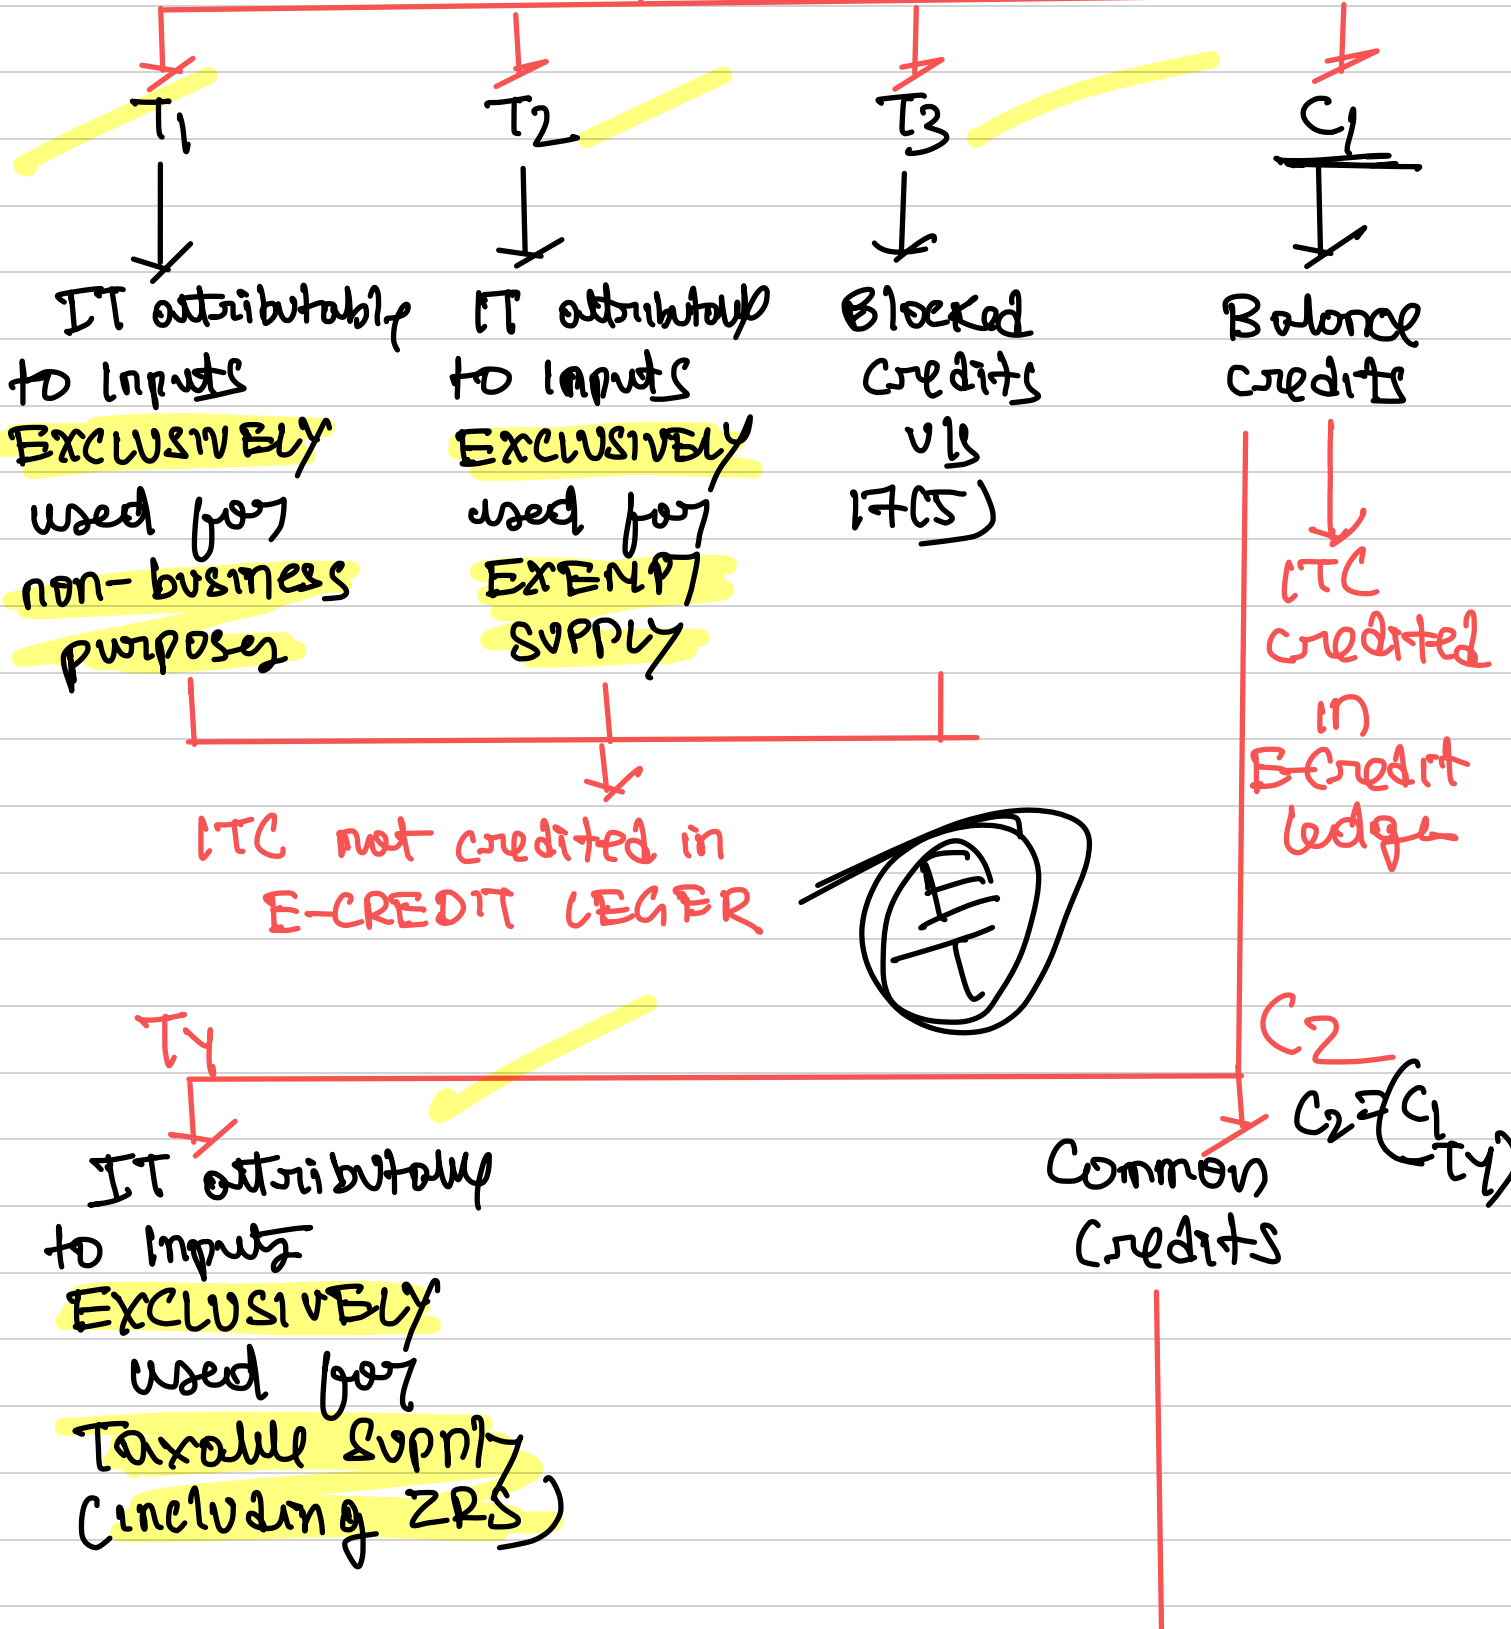 T1
T2
T3
C1
IT attributable
to inputs
EXCLUSIVELY
used for
non-business
purposes
IT attributable
to inputs
EXCLUSIVELY
used for
EXEMPT
SUPPLY
Blocked
Credits
U/S
17(5)
Balance
credits
ITC
credited
in
E-Credit
ledger
ITC not credited in
E-CREDIT LEGER
T4
C2
C2=(C1
T4)
IT attributable
to inputs
EXCLUSIVELY
used for
Taxable supply
(including ZRS)
Common
Credits